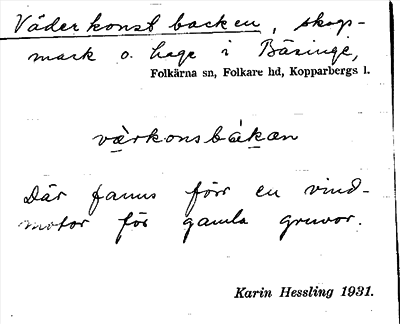 Väderkonstbacken, skogs-
mark o. hage i Bäsinge,
Folkärna sn, Folkare hd, Kopparbergs l.
värkonsbákan
Där fanns förr en vind-
motor för gamla gruvor.
Karin Hessling 1931.